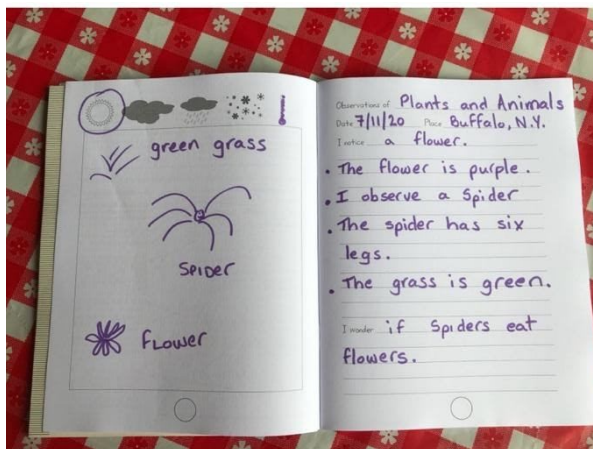 green grass
SPIDER
FLOWER
Observations of Plants and Animals
Date 7/11/20 Place Buffalo, N.Y.
I notice a flower.
• The flower is purple.
• I observe a Spider
• The spider has six
legs.
• The grass is green.
I wonder if Spiders eat
flowers.